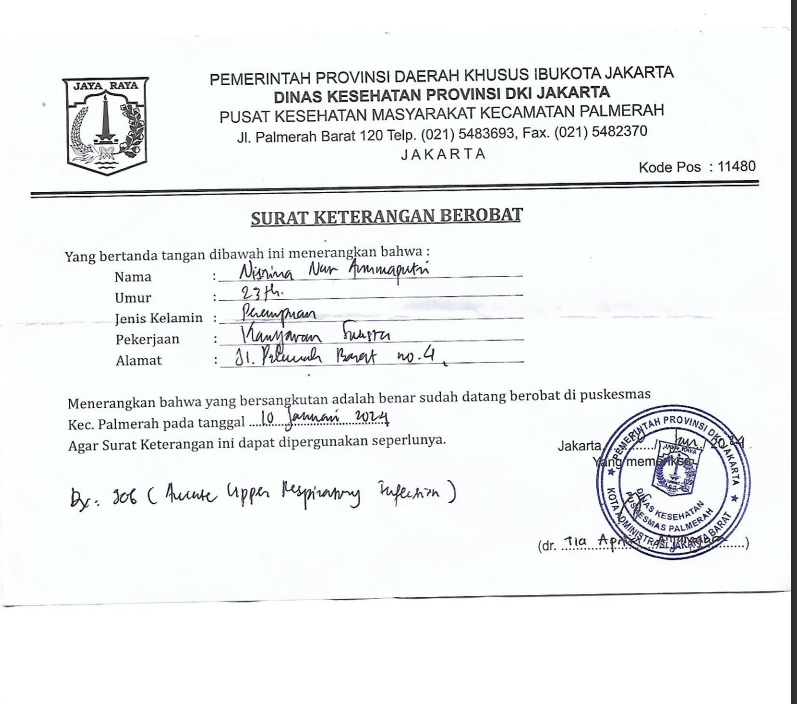 JAYA RAYA
PEMERINTAH PROVINSI DAERAH KHUSUS IBUKOTA JAKARTA
DINAS KESEHATAN PROVINSI DKI JAKARTA
PUSAT KESEHATAN MASYARAKAT KECAMATAN PALMERAH
Jl. Palmerah Barat 120 Telp. (021) 5483693, Fax. (021) 5482370
JAKARTA
Kode Pos : 11480
SURAT KETERANGAN BEROBAT
Yang bertanda tangan dibawah ini menerangkan bahwa :
Nama : Nisrina Nur
Umur : 23 th.
Jenis Kelamin : Perempuan
Pekerjaan : Karyawan Swasta
Alamat : Jl. Palmerah Barat no. 4
Menerangkan bahwa yang bersangkutan adalah benar sudah datang berobat di puskesmas
Kec. Palmerah pada tanggal 10 Januari 2024
Agar Surat Keterangan ini dapat dipergunakan seperlunya.
Jakarta 10 / Jan / 2024
Yang memeriksa
Dx: J06 (Acute Upper Respiratory Infection)
(dr. Tia )
PEMERINTAH PROVINSI DKI JAKARTA
JAYA RAYA
DINAS KESEHATAN
PUSKESMAS PALMERAH
KOTA ADMINISTRASI JAKARTA BARAT